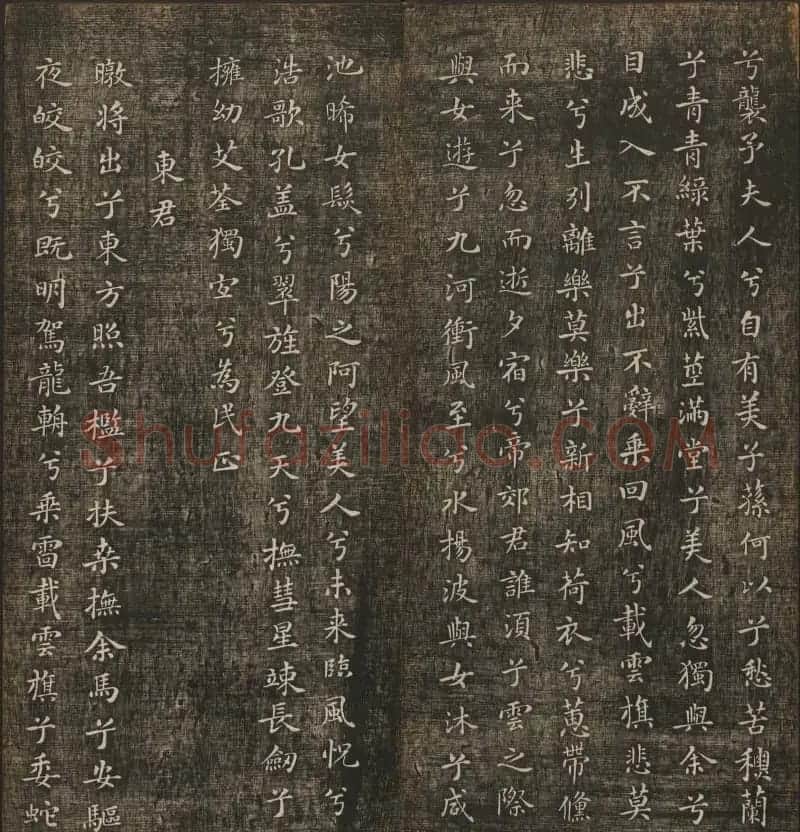 兮襲予夫人兮自有美子蓀何以兮愁苦穐蘭
兮青青綠葉兮紫莖滿堂兮美人忽獨與余兮
目成入不言兮出不辭乗回風兮載雲旗悲莫
悲兮生別離樂莫樂兮新相知荷衣兮蕙帶儵
而来兮忽而逝夕宿兮帝郊君誰須兮雲之際
與女遊兮九河衝風至兮水揚波與女沐兮咸
池晞女髮兮陽之阿望美人兮未来臨風怳兮
浩歌孔盖兮翠旌登九天兮撫彗星竦長劒兮
擁幼艾荃獨宜兮為民正
東君
暾將出兮東方照吾檻兮扶桒撫余馬兮安驅
夜皎皎兮既明駕龍輈兮乗雷載雲旗兮委蛇
shufaziliao.COM